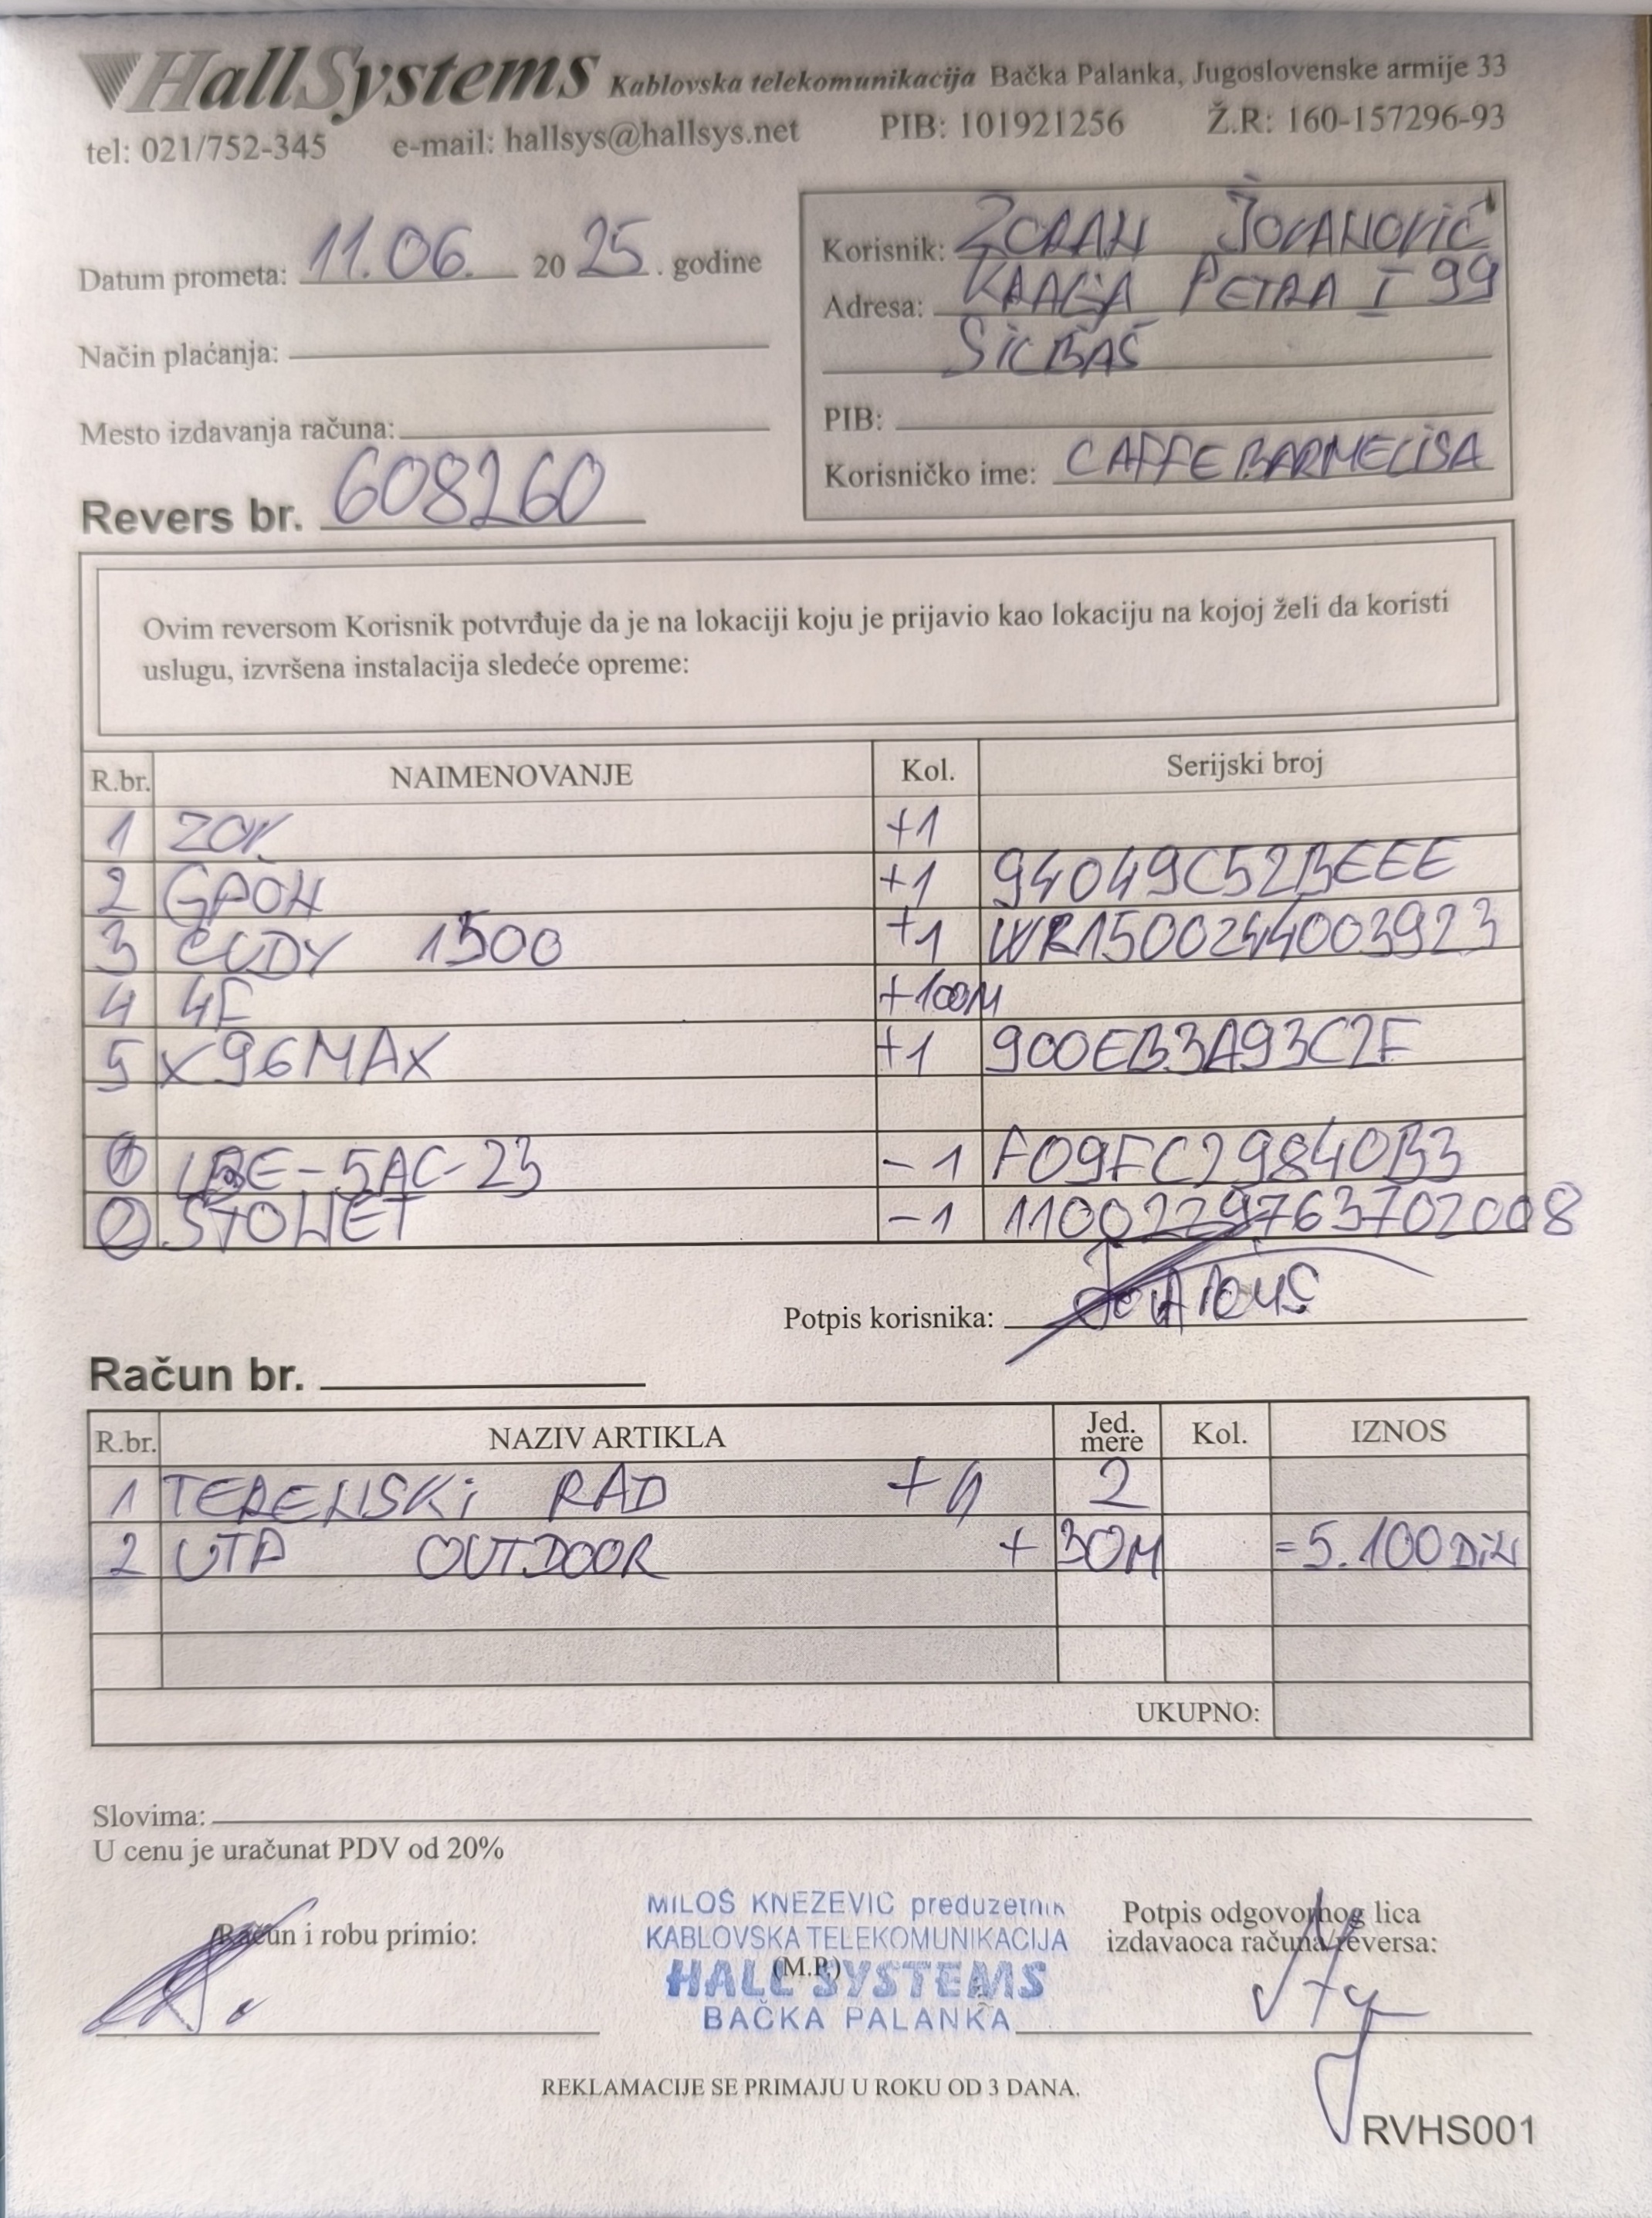 HallSystems Kablovska telekomunikacija Bačka Palanka, Jugoslovenske armije 33
tel: 021/752-345 e-mail: hallsys@hallsys.net PIB: 101921256 Ž.R: 160-157296-93
Datum prometa: 11.06. 2025. godine
Način plaćanja:
Mesto izdavanja računa:
Revers br. 608260
Korisnik: ZORAN JOVANOVIĆ
Adresa: KRALJA PETRA I 99
SILBAŠ
PIB:
Korisničko ime: CAFFEBARMELISA
Ovim reversom Korisnik potvrđuje da je na lokaciji koju je prijavio kao lokaciju na kojoj želi da koristi
uslugu, izvršena instalacija sledeće opreme:
R.br. NAIMENOVANJE Kol. Serijski broj
1 ZOK +1
2 GPON +1 94049C52BEEE
3 CUDY 1500 +1 WR1500244003923
4 4F +100M
5 X96MAX +1 900EB3A93C2F
1 LBE-5AC-23 -1 F09FC29840B3
2 STONET -1 1100229763702008
Potpis korisnika:
Račun br.
R.br. NAZIV ARTIKLA Jed. mere Kol. IZNOS
1 TERENSKI RAD + 2
2 UTP OUTDOOR + 30M =5.100 DIN
UKUPNO:
Slovima:
U cenu je uračunat PDV od 20%
Račun i robu primio:
MILOŠ KNEZEVIC preduzetnik
KABLOVSKA TELEKOMUNIKACIJA
(M.P.)
HALL SYSTEMS
BAČKA PALANKA
Potpis odgovornog lica
izdavaoca računa/reversa:
REKLAMACIJE SE PRIMAJU U ROKU OD 3 DANA.
RVHS001